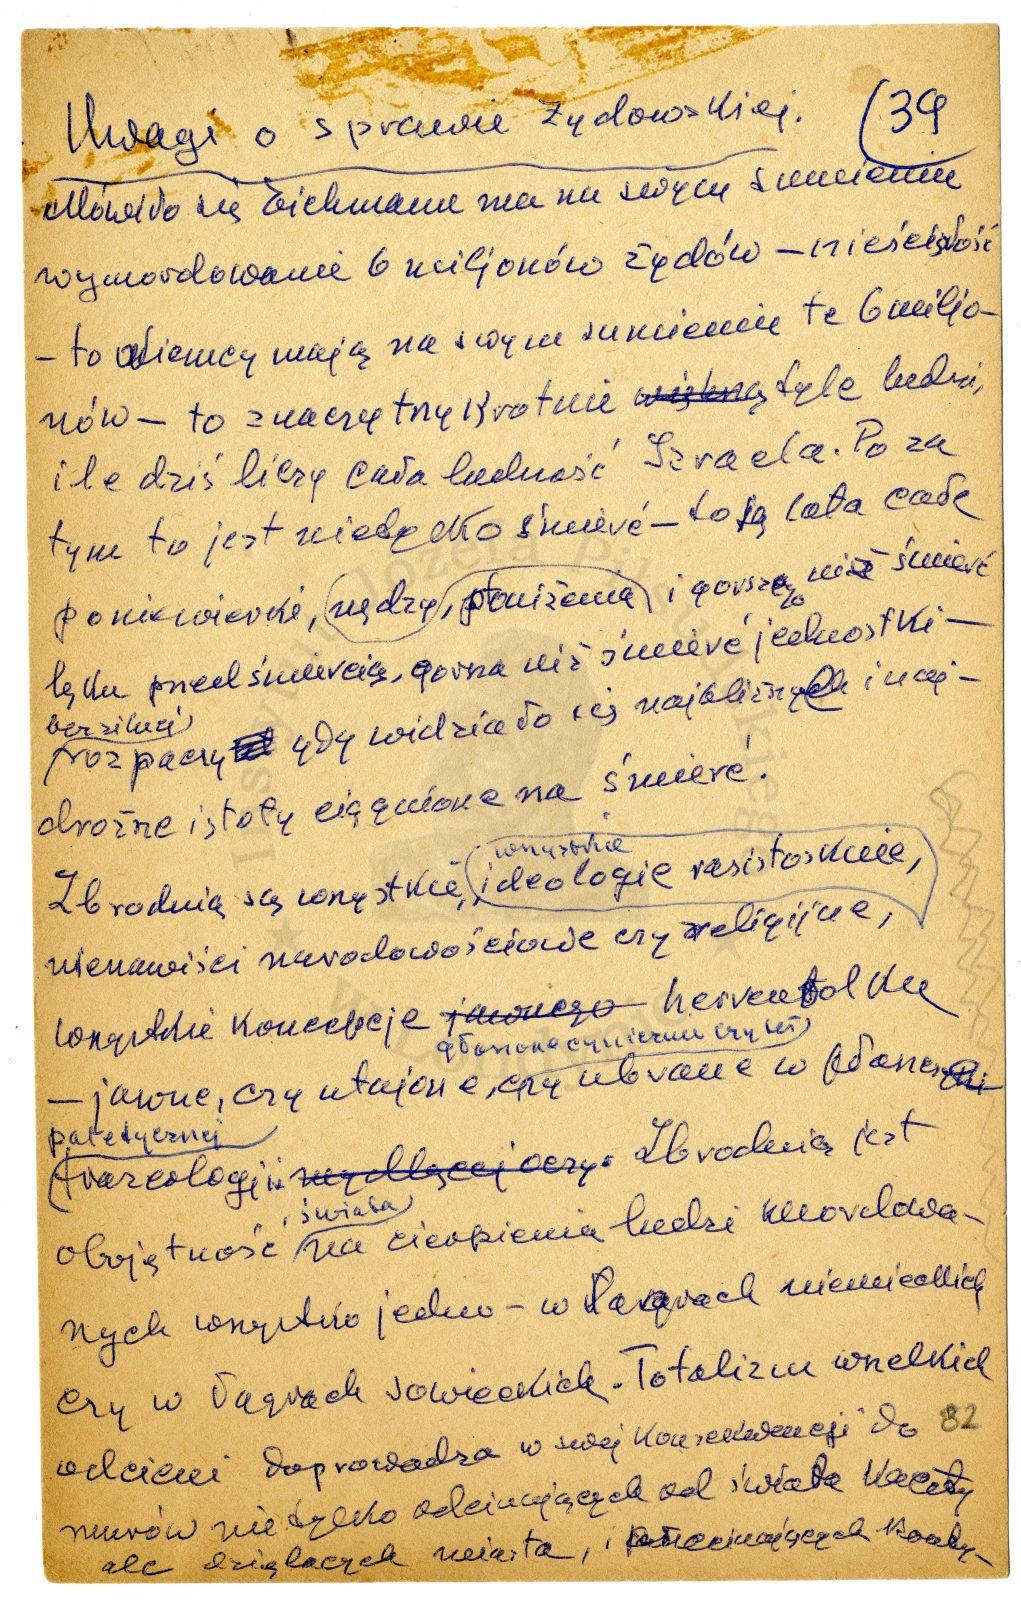 Uwagi o sprawie żydowskiej. (39
Mówiło się Eichmann ma na swym sumieniu
wymordowanie 6 miljonów żydów – nieścisłość
– to Niemcy mają na swym sumieniu te 6 miljo–
nów – to znaczy trzykrotnie tyle ludzi,
ile dziś liczy cała ludność Izraela. Poza
tym to jest nietylko śmierć – to są lata całe
poniewierki, nędzy, poniżenia i gorszego niż śmierć
lęku przed śmiercią, gorsza niż śmierć jednostki –
bezsilnej
rozpaczy gdy widziało się najbliższych i naj–
droższe istoty ciągnione na śmierć.
wszystkie
Zbrodnią są wszystkie, ideologie rasistowskie,
nienawiści narodowościowe czy religijne,
wszystkie koncepcje jawnego herrenvolku
głoszone cynicznie czy też
– jawne, czy utajone, czy ubrane w płaszczyk
patetycznej
frazeologji mydlącej oczy. Zbrodnią jest
świata
obojętność na cierpienia ludzi mordowa–
nych wszystko jedno – w łagrach niemieckich
czy w łagrach sowieckich. Totalizm wszelkich
odcieni doprowadza w swej konsekwencji do 82
murów nie tylko odcinających od świata kacety
ale dzielących miasta, i